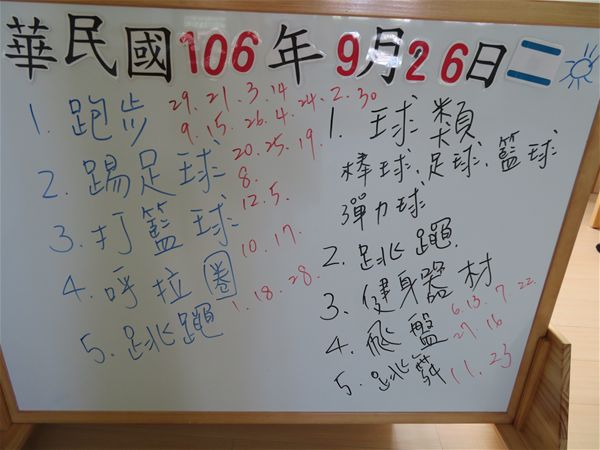 華民國106年9月26日 二
1. 跑步 29.21.3.14
9.15.26.4.24.2.30
2. 踢足球 20.25.19.
8.
3. 打籃球 12.5.
4. 呼拉圈 10.17.
5. 跳繩 1.18.28.
1. 球類
棒球.足球.籃球
彈力球
2. 跳繩.
3. 健身器材
4. 飛盤 6.13.7.22.
27.16
5. 跳 11.23